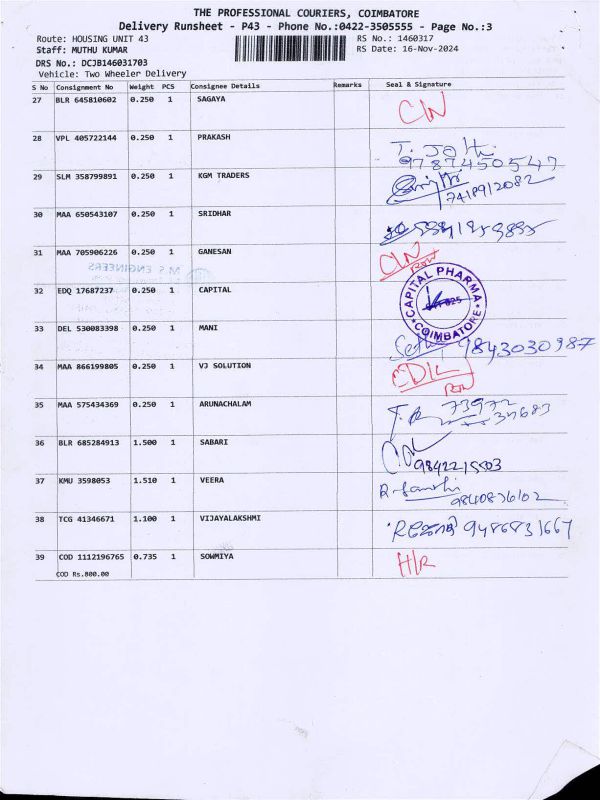 THE PROFESSIONAL COURIERS, COIMBATORE
Delivery Runsheet - P43 - Phone No.:0422-3505555 - Page No.:3
Route: HOUSING UNIT 43
RS No.: 1460317
Staff: MUTHU KUMAR
RS Date: 16-Nov-2024
DRS No.: DCJB146031703
Vehicle: Two Wheeler Delivery
S No Consignment No Weight PCS Consignee Details Remarks Seal & Signature
27 BLR 645810602 0.250 1 SAGAYA C/N
28 VPL 405722144 0.250 1 PRAKASH
9787450547
29 SLM 358799891 0.250 1 KGM TRADERS
7418912082
30 MAA 650543107 0.250 1 SRIDHAR
31 MAA 705906226 0.250 1 GANESAN C/N
M S ENGINEERS
32 EDQ 17687237 0.250 1 CAPITAL
CAPITAL PHARMA
COIMBATORE
33 DEL 530083398 0.250 1 MANI
9843030987
34 MAA 866199805 0.250 1 VJ SOLUTION
35 MAA 575434369 0.250 1 ARUNACHALAM
73972
36 BLR 685284913 1.500 1 SABARI
37 KMU 3598053 1.510 1 VEERA
38 TCG 41346671 1.100 1 VIJAYALAKSHMI
9486831667
39 COD 1112196765 0.735 1 SOWMIYA H/R
COD Rs.800.00